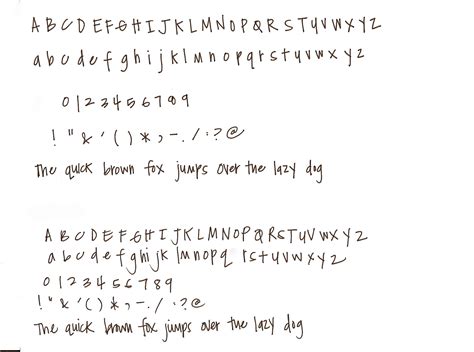 A B C D E F G H I J K L M N O P Q R S T U V W X Y Z
a b c d e f g h i j k l m n o p q r s t u v w x y z
0 1 2 3 4 5 6 7 8 9
! " & ' ( ) * , - . / : ? @
The quick brown fox jumps over the lazy dog
A B C D E F G H I J K L M N O P Q R S T U V W X Y Z
a b c d e f g h i j k l m n o p q r s t u v w x y z
0 1 2 3 4 5 6 7 8 9
! " & ' ( ) * , - . / : ? @
The quick brown fox jumps over the lazy dog